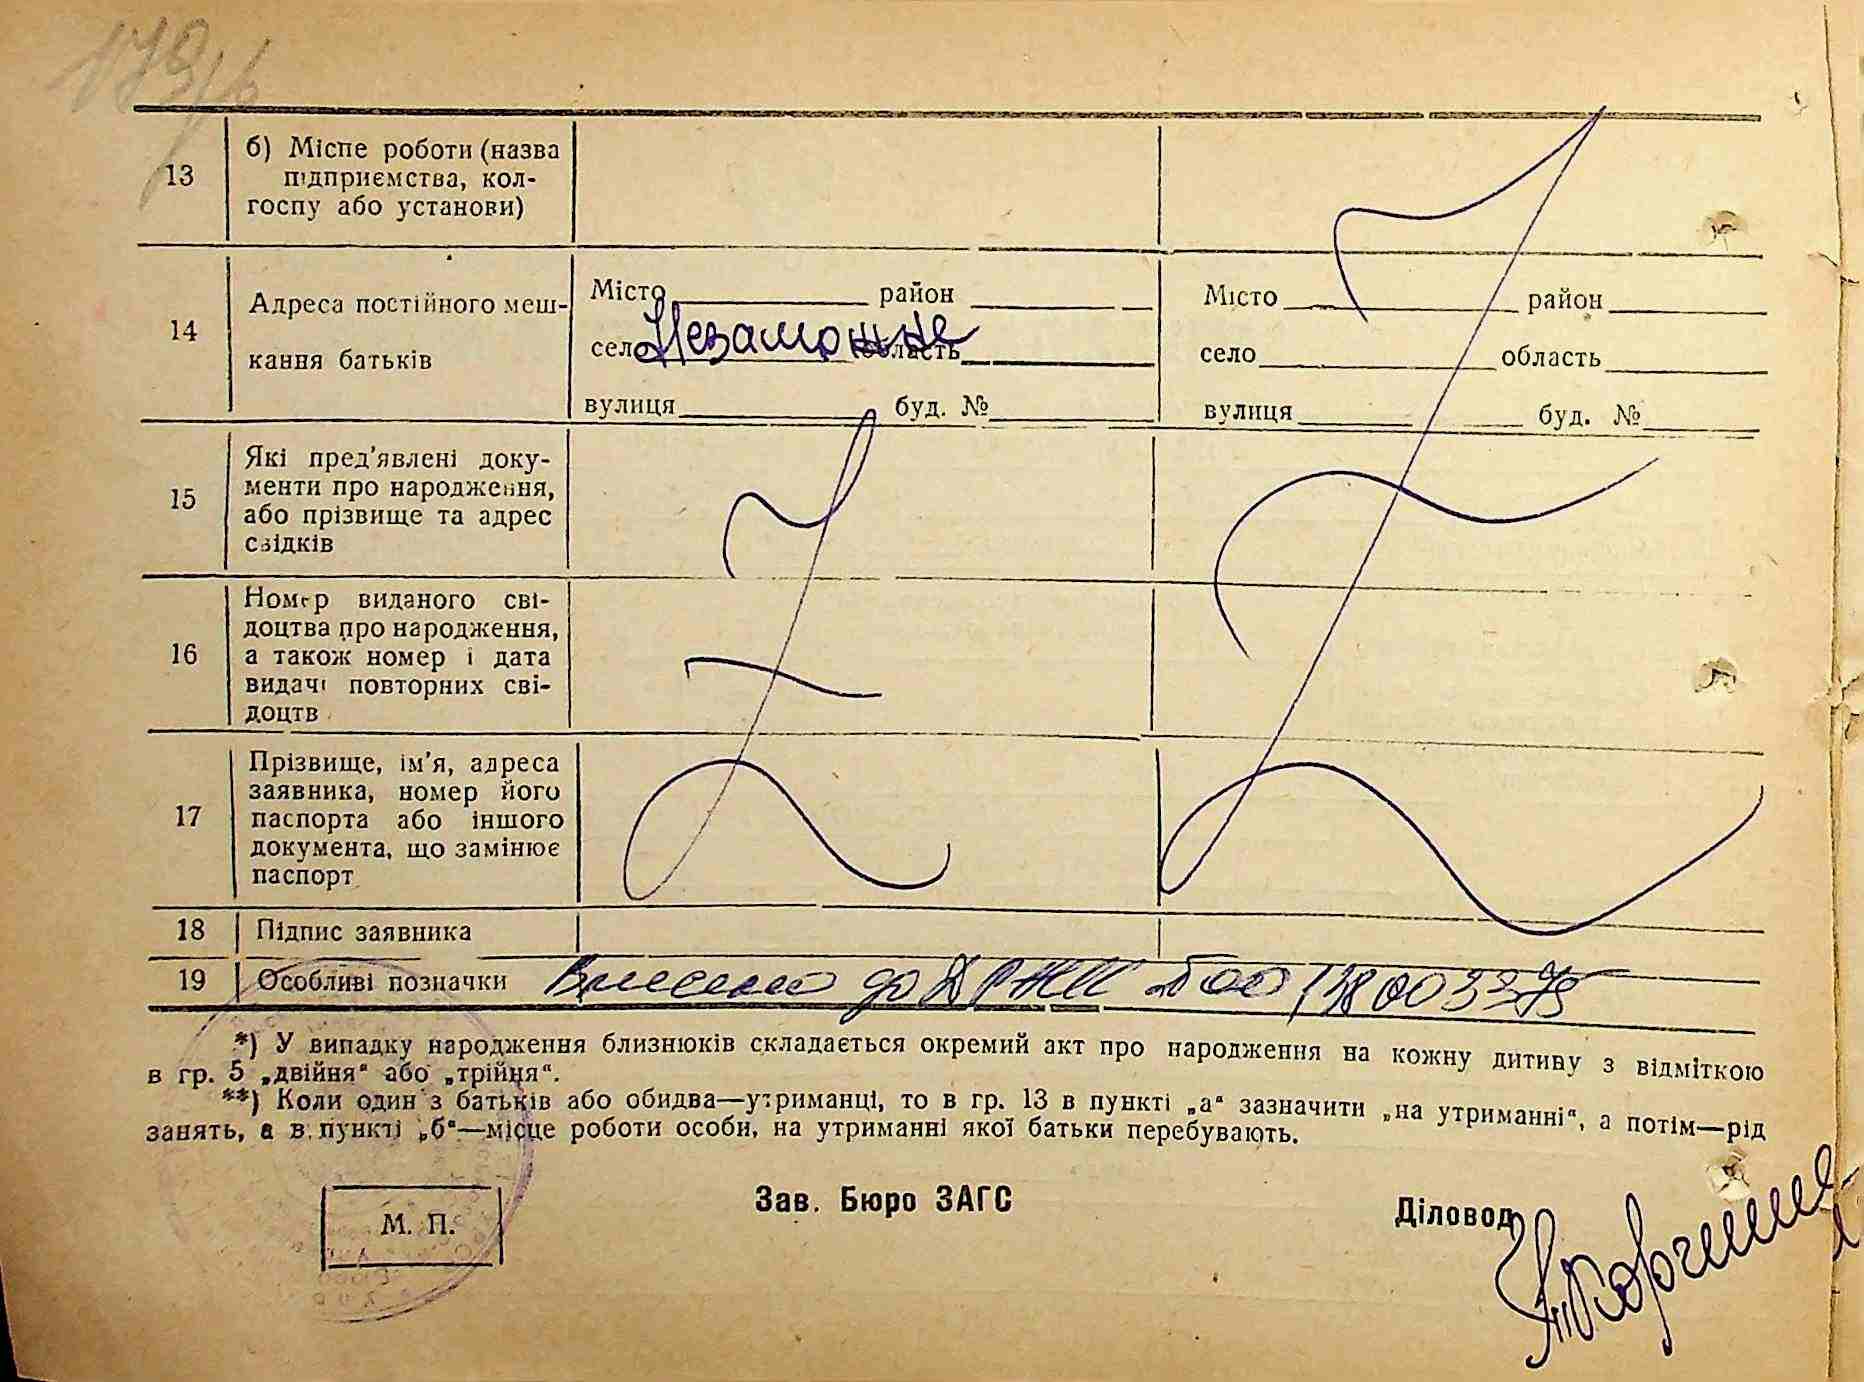 13 б) Місце роботи (назва
підприємства, кол-
госпу або установи)
14 Адреса постійного меш-
кання батьків
Місто район
село Незаможне область
вулиця буд. №
Місто район
село область
вулиця буд. №
15 Які пред'явлені доку-
менти про народження,
або прізвище та адрес
свідків
16 Номер виданого сві-
доцтва про народження,
а також номер і дата
видачі повторних сві-
доцтв
17 Прізвище, ім'я, адреса
заявника, номер його
паспорта або іншого
документа, що замінює
паспорт
18 Підпис заявника
19 Особливі позначки Внесено до
*) У випадку народження близнюків складається окремий акт про народження на кожну дитину з відміткою
в гр. 5 „двійня“ або „трійня“.
**) Коли один з батьків або обидва—утриманці, то в гр. 13 в пункті „а“ зазначити „на утриманні“, а потім—рід
занять, а в пункті „б“—місце роботи особи, на утриманні якої батьки перебувають.
М. П.
Зав. Бюро ЗАГС
Діловод